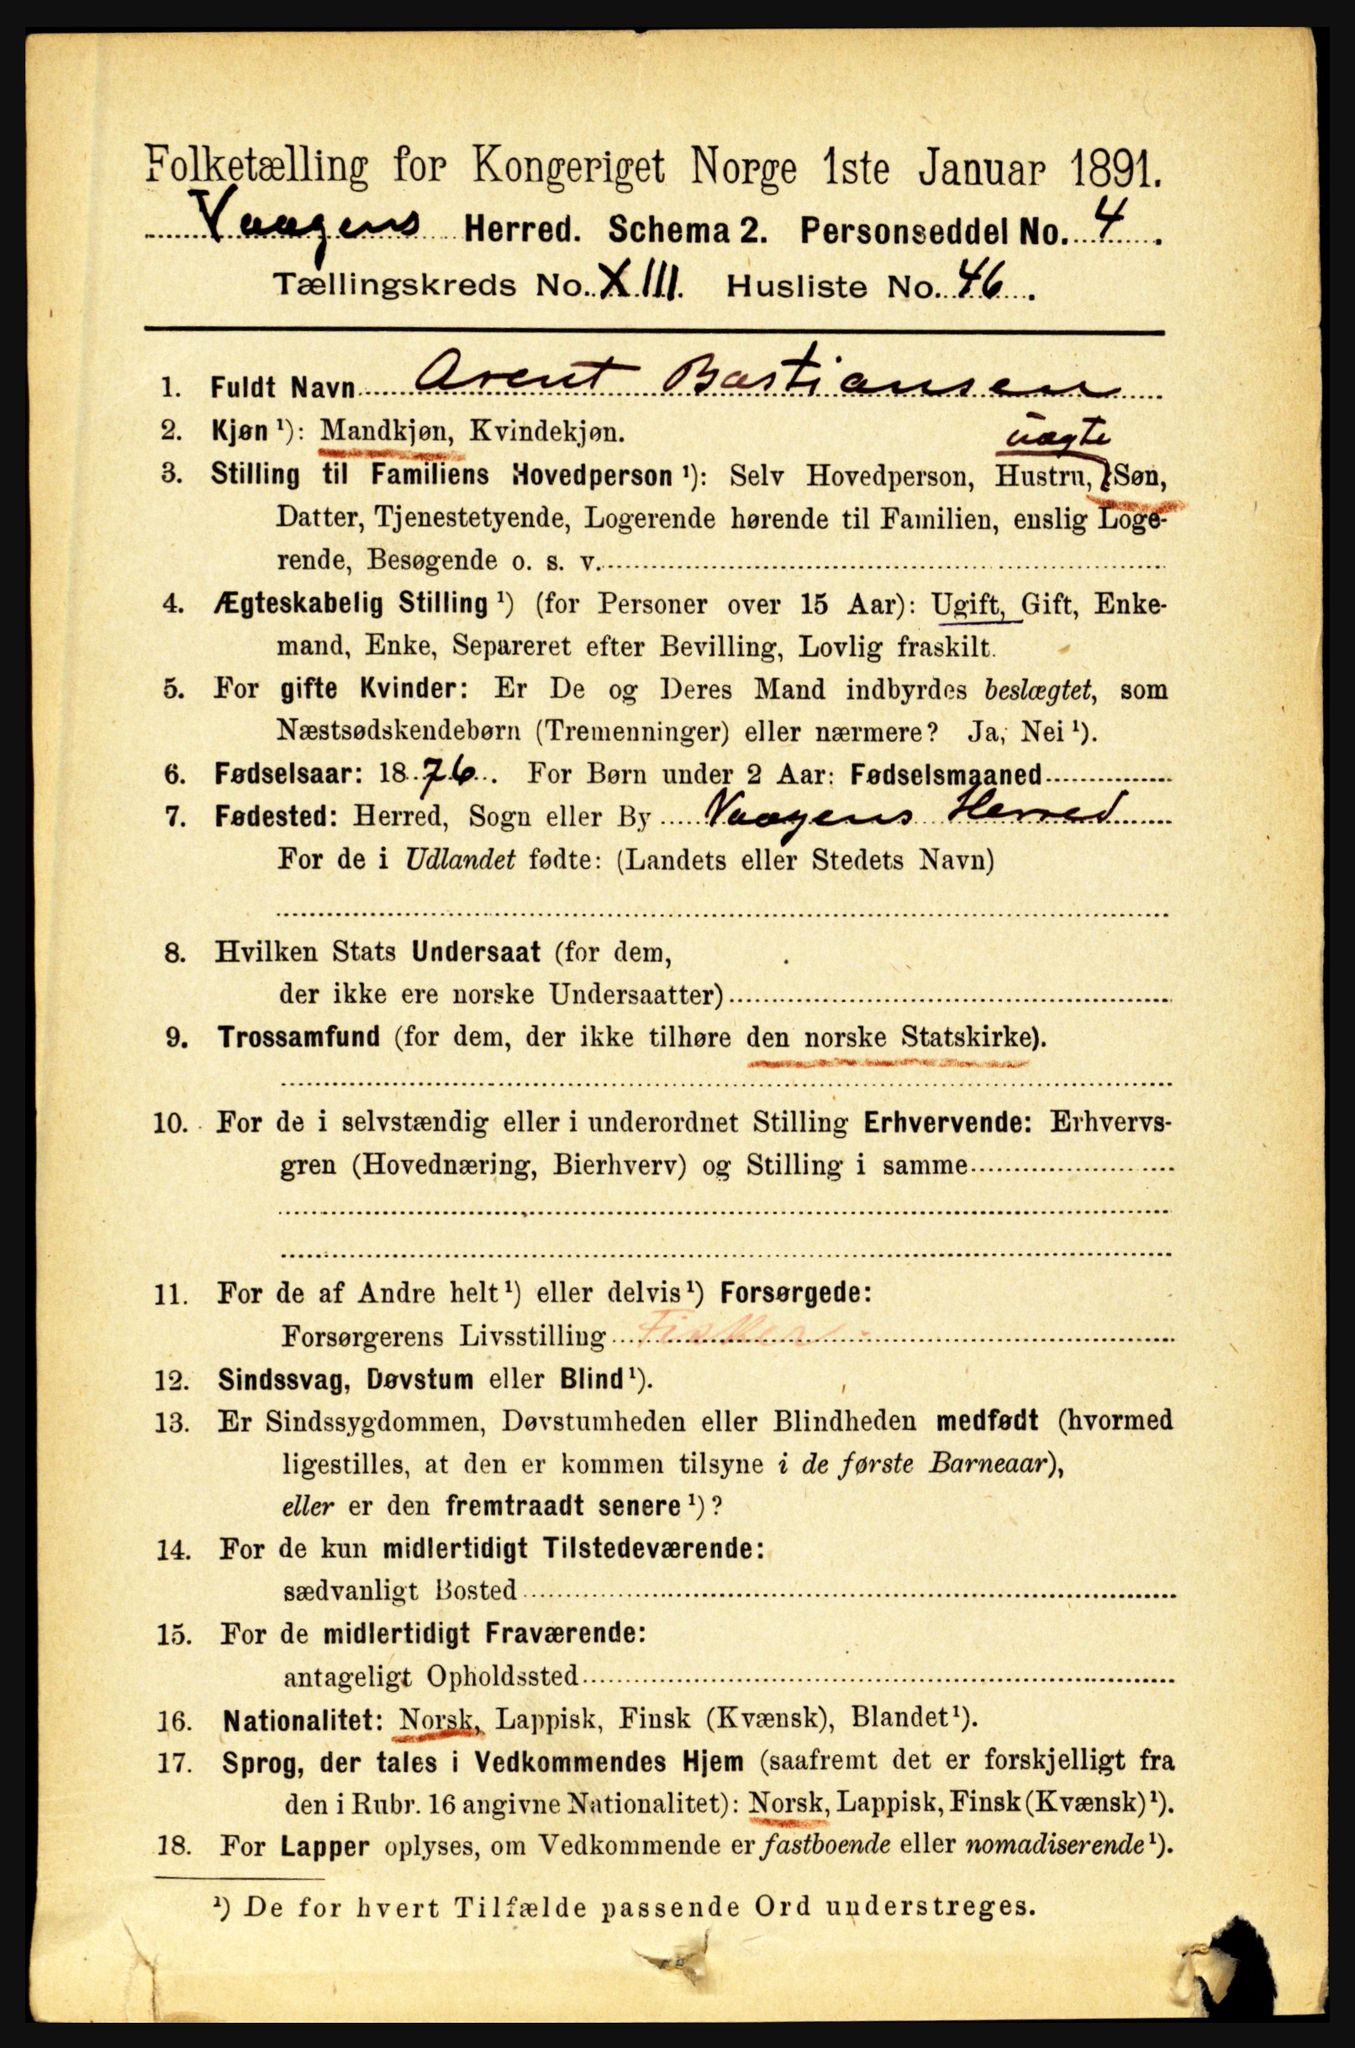 Folketælling for Kongeriget Norge 1ste Januar 1891.
Vaagens Herred. Schema 2. Personseddel No. 4.
Tællingskreds No. XIII. Husliste No. 46.
1. Fuldt Navn Arent Bastiansen
2. Kjøn ¹): Mandkjøn, Kvindekjøn.
uægte
3. Stilling til Familiens Hovedperson ¹): Selv Hovedperson, Hustru, Søn,
Datter, Tjenestetyende, Logerende hørende til Familien, enslig Loge-
rende, Besøgende o. s. v.
4. Ægteskabelig Stilling ¹) (for Personer over 15 Aar): Ugift, Gift, Enke-
mand, Enke, Separeret efter Bevilling, Lovlig fraskilt.
5. For gifte Kvinder: Er De og Deres Mand indbyrdes beslægtet, som
Næstsødskendebørn (Tremenninger) eller nærmere? Ja, Nei ¹).
6. Fødselsaar: 1876. For Børn under 2 Aar: Fødselsmaaned
7. Fødested: Herred, Sogn eller By Vaagens Herred
For de i Udlandet fødte: (Landets eller Stedets Navn)
8. Hvilken Stats Undersaat (for dem,
der ikke ere norske Undersaatter)
9. Trossamfund (for dem, der ikke tilhøre den norske Statskirke).
10. For de i selvstændig eller i underordnet Stilling Erhvervende: Erhvervs-
gren (Hovednæring, Bierhverv) og Stilling i samme
11. For de af Andre helt ¹) eller delvis ¹) Forsørgede:
Forsørgerens Livsstilling Fisker
12. Sindssvag, Døvstum eller Blind ¹).
13. Er Sindssygdommen, Døvstumheden eller Blindheden medfødt (hvormed
ligestilles, at den er kommen tilsyne i de første Barneaar),
eller er den fremtraadt senere ¹)?
14. For de kun midlertidigt Tilstedeværende:
sædvanligt Bosted
15. For de midlertidigt Fraværende:
antageligt Opholdssted
16. Nationalitet: Norsk, Lappisk, Finsk (Kvænsk), Blandet ¹).
17. Sprog, der tales i Vedkommendes Hjem (saafremt det er forskjelligt fra
den i Rubr. 16 angivne Nationalitet): Norsk, Lappisk, Finsk (Kvænsk) ¹).
18. For Lapper oplyses, om Vedkommende er fastboende eller nomadiserende ¹).
¹) De for hvert Tilfælde passende Ord understreges.